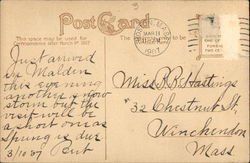 Post Card
This space may be used for
correspondence after March 1st 1907
MAR 11
1907
Just arrived
in Malden
this evening
another snow
storm but the
visit will be
a short one as
Spring is due
3/10/07 Bert
Miss R. B. Hastings
#32 Chestnut St,
Winchendon
Mass